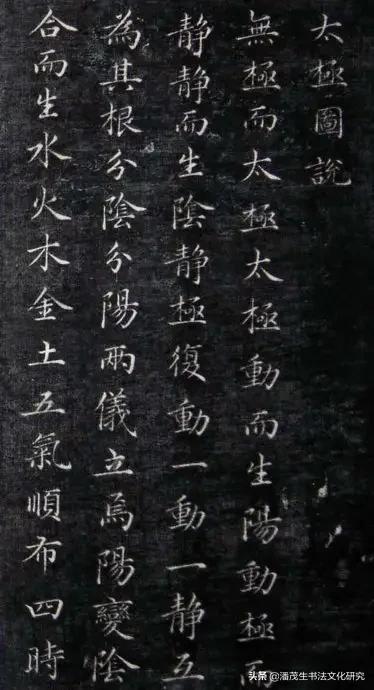 太極圖說
無極而太極太極動而生陽動極而
静静而生陰静極復動一動一静互
為其根分陰分陽兩儀立焉陽變陰
合而生水火木金土五氣順布四時
头条 @潘茂生书法文化研究